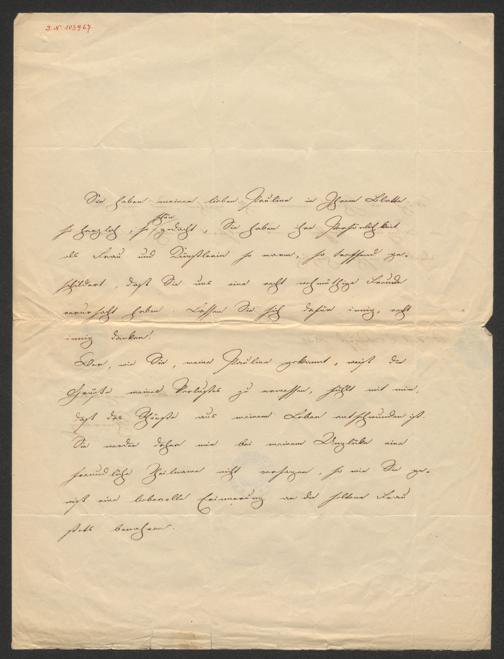 J. N. 103967
Sie haben meiner lieben Pauline in Ihrem Blatte
so herzlich, so schön gedacht, Sie haben ihre Persönlichkeit
als Frau und Künstlerin so warm, so treffend ge-
schildert, daß Sie uns eine recht wehmüthige Freude
verursacht haben. Lassen Sie sich dafür innig, recht
innig danken!
Wer, wie Sie, meine Pauline gekannt, weiß die
Größe meines Verlustes zu ermessen, fühlt mit mir,
daß das Schönste aus meinem Leben entschwunden ist.
Sie werden daher mir bei meinem Unglücke eine
freundliche Theilname nicht versagen, so wie Sie ge-
wiß eine liebevolle Erinnerung an die seltene Frau
stets bewahren.